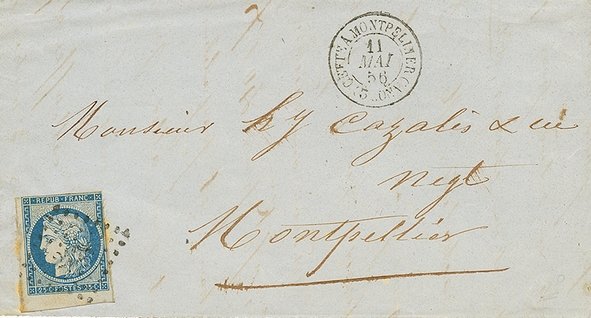 CETTE A MONTPELLIER
11
MAI
56
Monsieur hy Cazalis & cie
Negt
Montpellier
REPUB FRANC
25 C POSTES 25 C